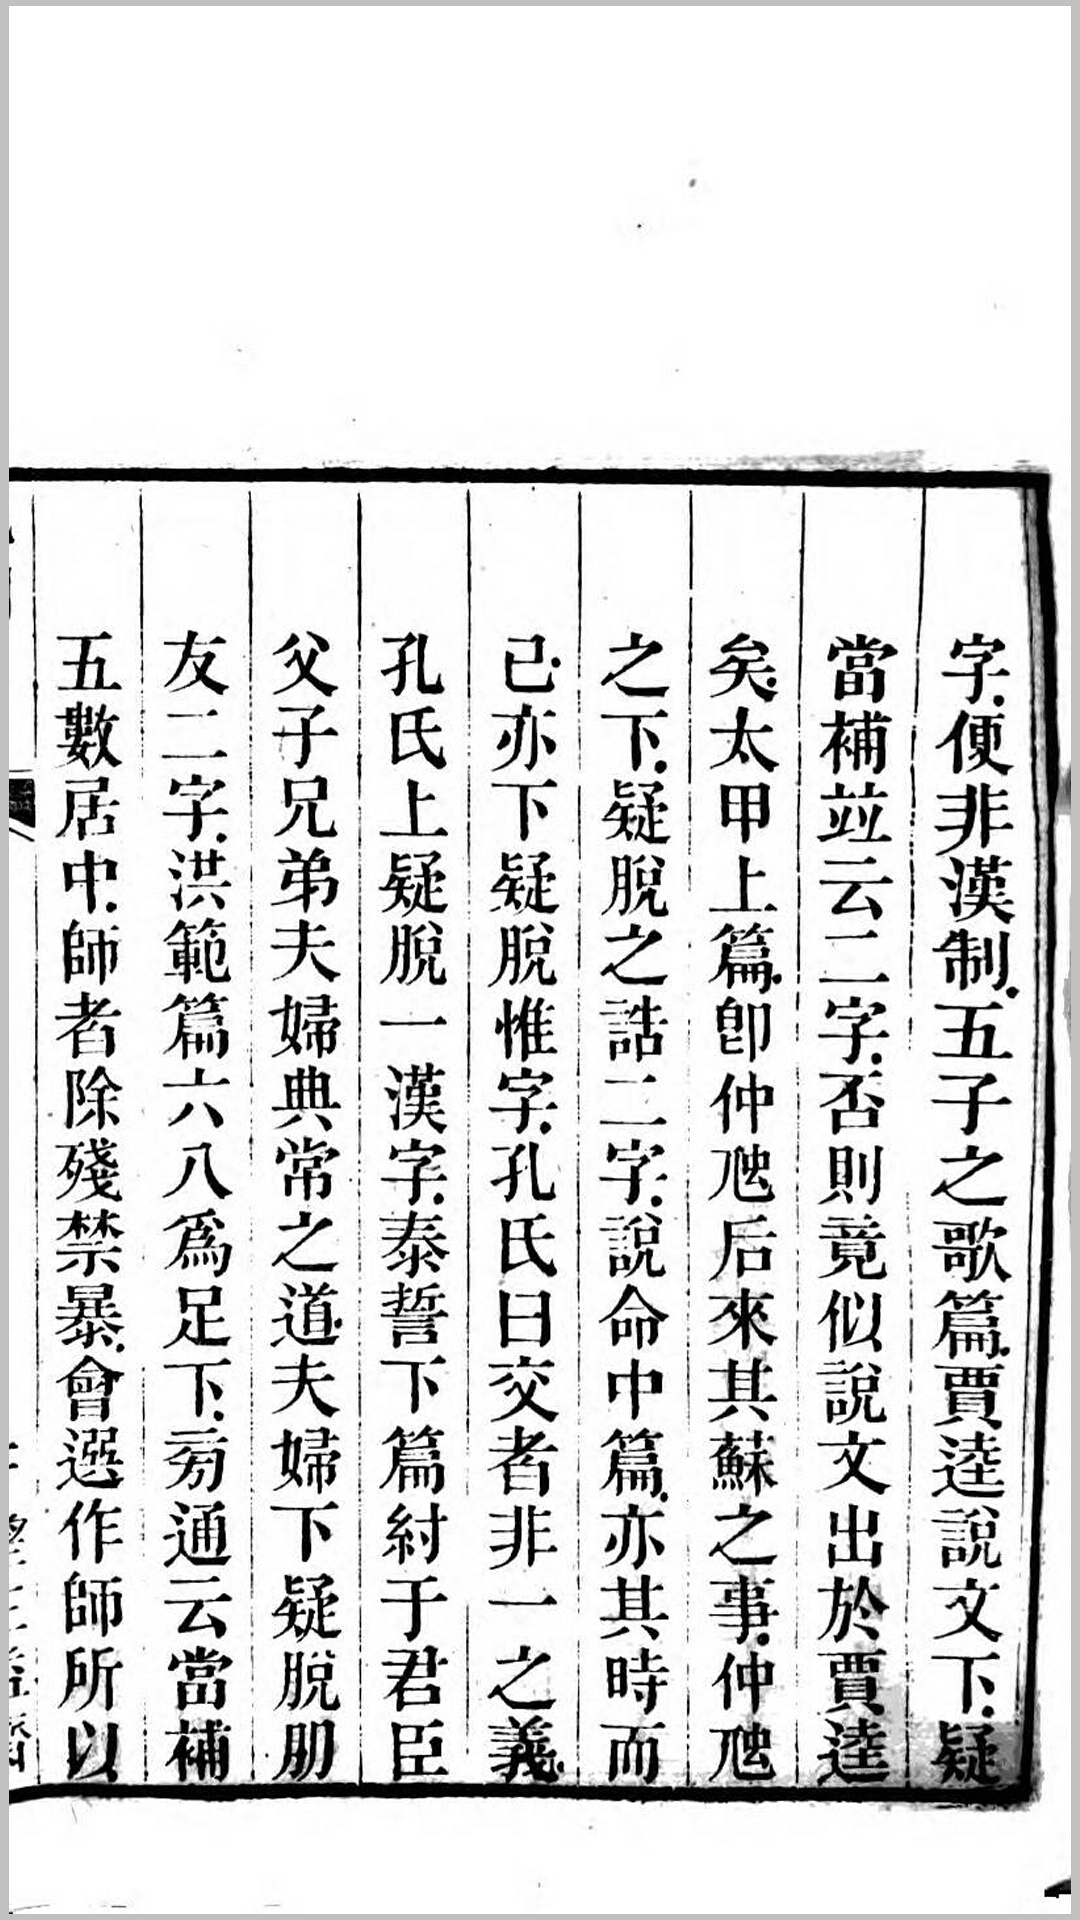 字便非漢制五子之歌篇賈逵說文下疑
當補竝云二字否則竟似說文出於賈逵
矣太甲上篇卽仲虺后來其蘇之事仲虺
之下疑脫之誥二字說命中篇亦其時而
已亦下疑脫惟字孔氏曰交者非一之義
孔氏上疑脫一漢字泰誓下篇紂于君臣
父子兄弟夫婦典常之道夫婦下疑脫朋
友二字洪範篇六八爲足下旁通云當補
五數居中師者除殘禁暴會選作師所以